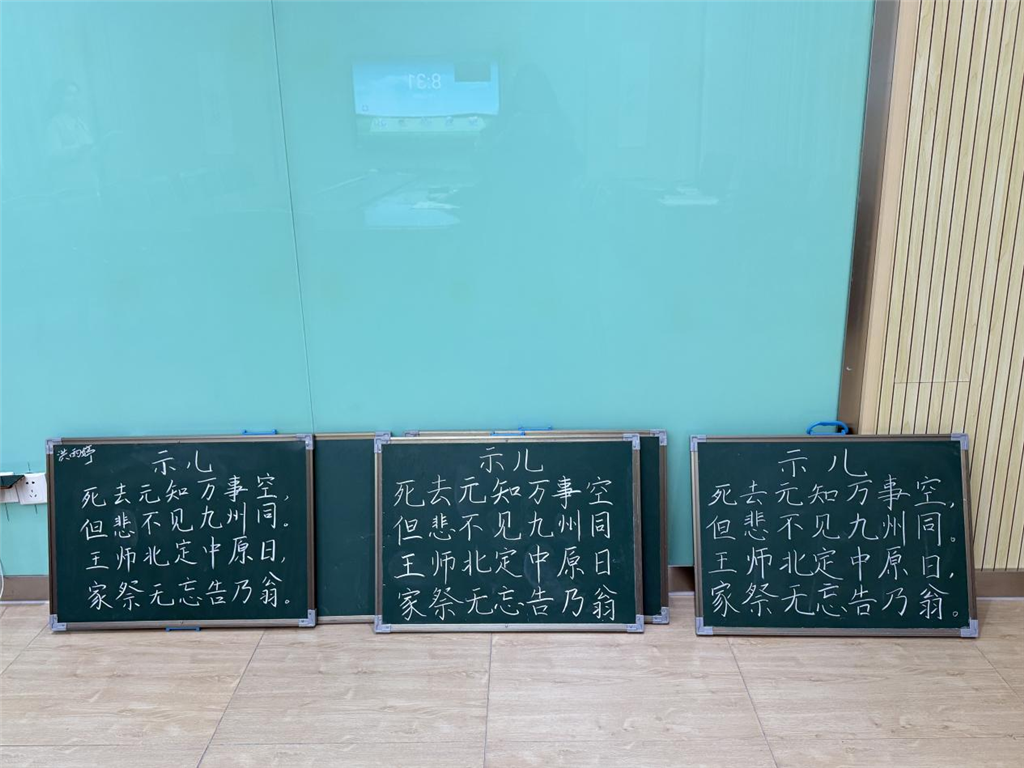 8:31
洪雨婷
示儿
死去元知万事空，
但悲不见九州同。
王师北定中原日，
家祭无忘告乃翁。
示儿
死去元知万事空
但悲不见九州同
王师北定中原日
家祭无忘告乃翁
示儿
死去元知万事空，
但悲不见九州同。
王师北定中原日，
家祭无忘告乃翁。